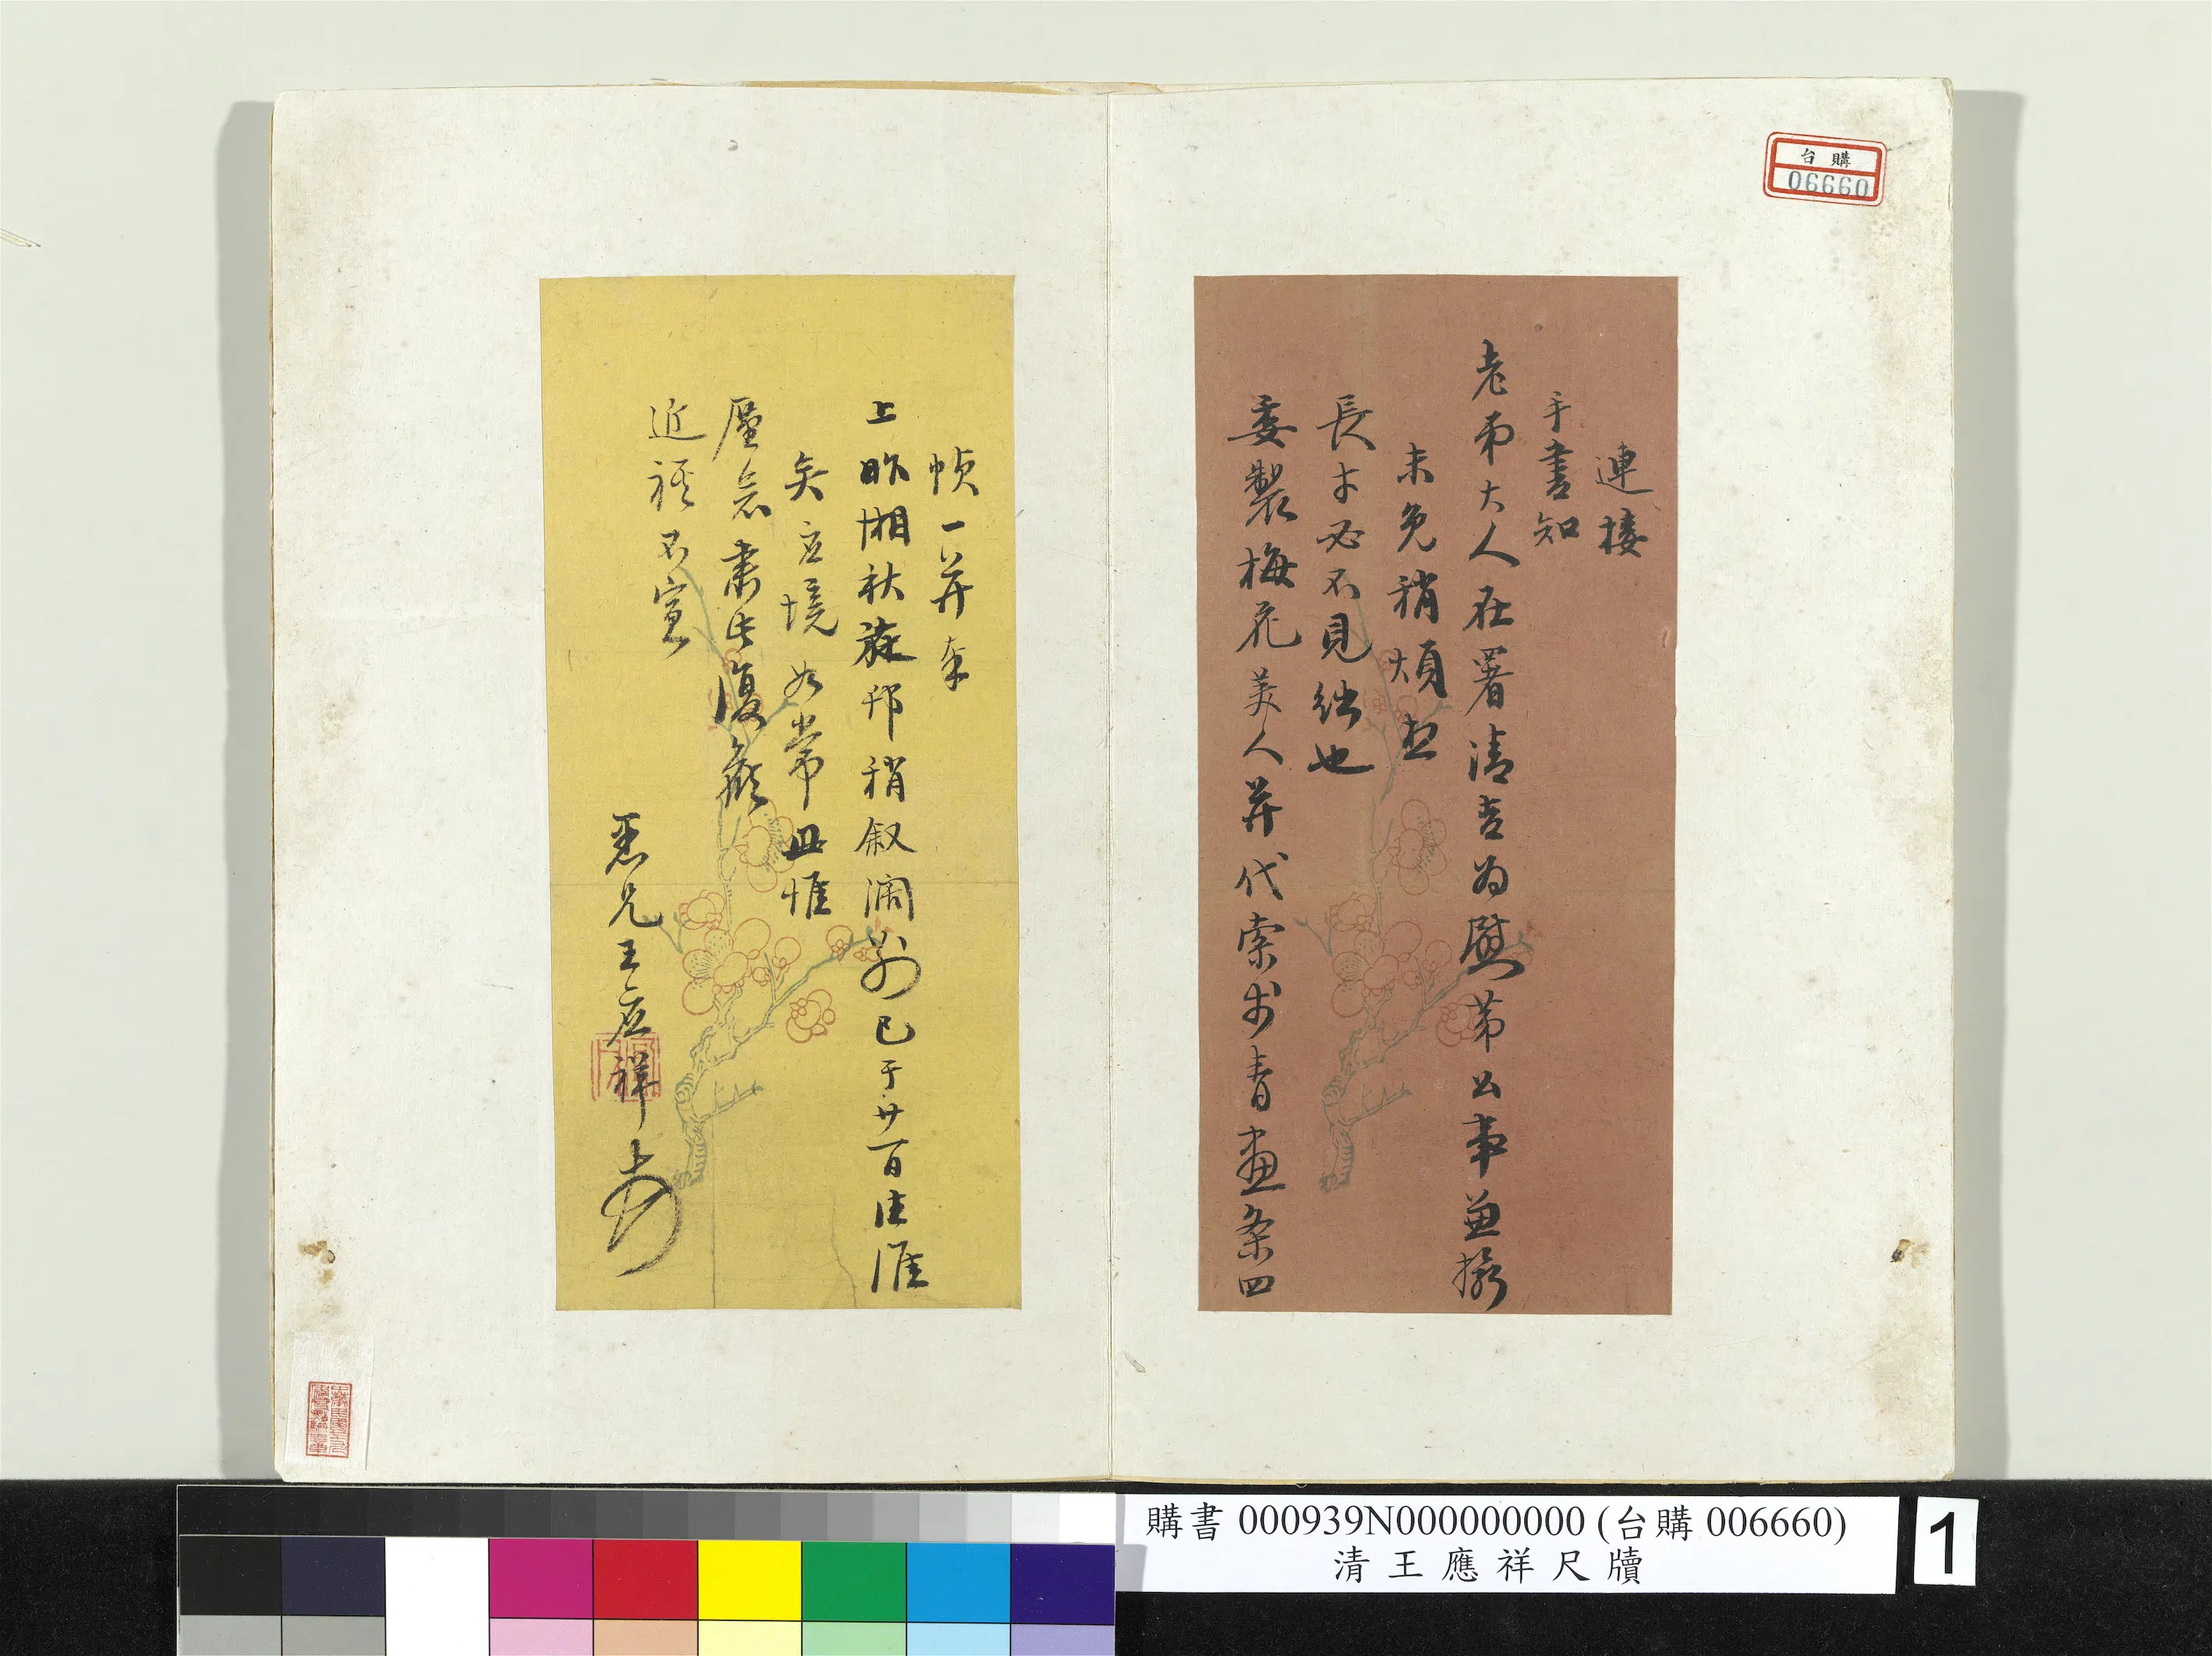 台購
06660
連接
手書知
老弟大人在署清吉為慰苐公事並撥
未免稍煩想
長才必不見絀也
委製梅花美人並代索少青畫条四
幀一并奉
上昨湘秋旋邗稍叙濶别已于廿一日往淮
矣立境如常并惟
厪念肅此復頌
近祺不宣
愚兄王应祥
購書 000939N000000000 (台購 006660)
清王應祥尺牘
1